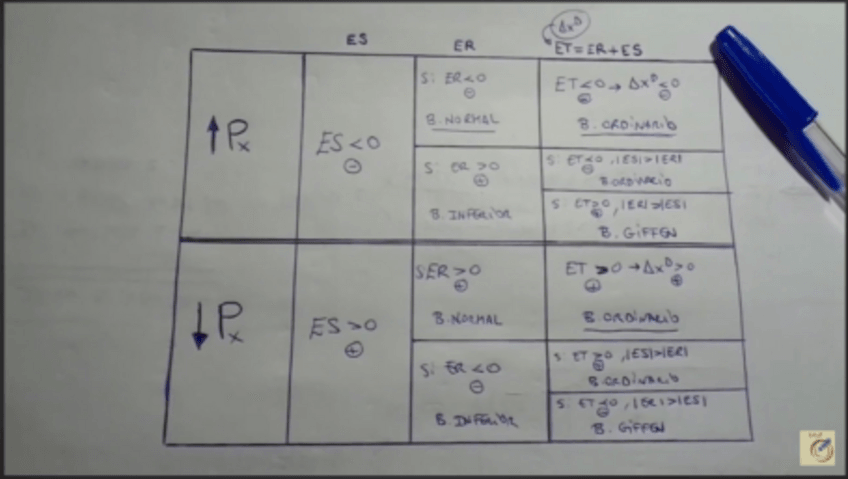 Δx^D
ES ER ET=ER+ES
↑Px
ES<0
⊖
Si ER<0
⊖
B. NORMAL
ET<0→ Δx^D<0
⊖ ⊖
B. ORDINARIO
Si ER >0
⊕
B. INFERIOR
Si ET<0, |ES|>|ER|
⊖
B. ORDINARIO
Si ET>0, |ER|>|ES|
⊕
B. GIFFEN
↓Px
ES>0
⊕
SER>0
⊕
B. NORMAL
ET >0 →Δx^D>0
⊕ ⊕
B. ORDINARIO
Si ER <0
⊖
B. INFERIOR
Si ET >0, |ES|>|ER|
⊕
B. ORDINARIO
Si ET <0, |ER|>|ES|
⊖
B. GIFFEN